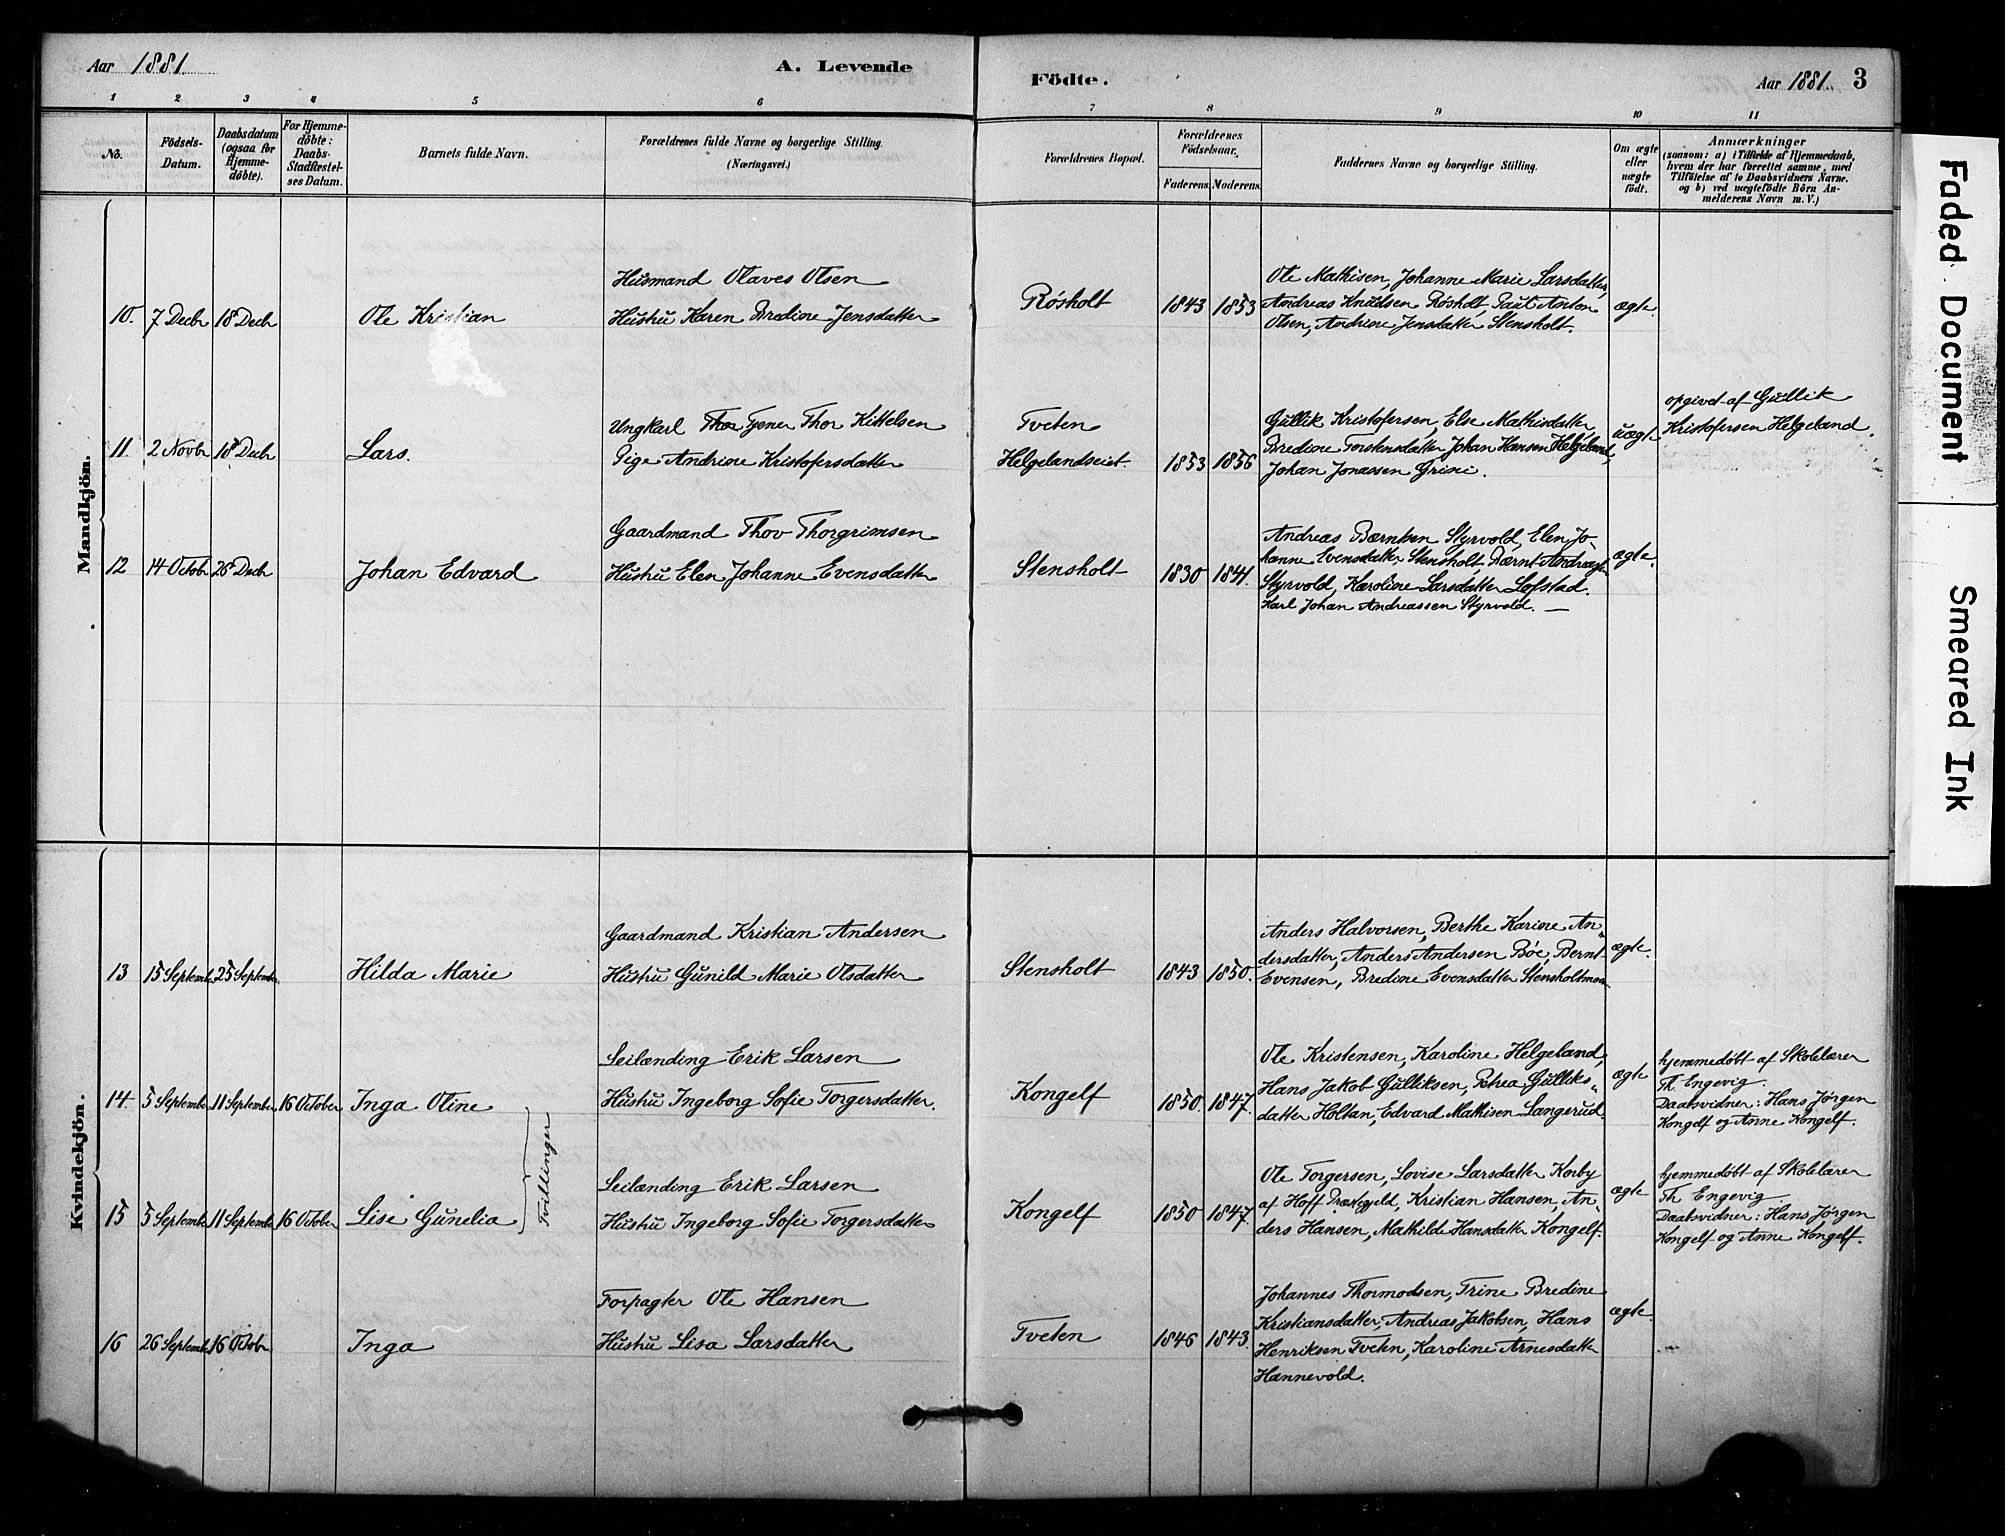 Aar 1881.
A. Levende
Födte.
Aar 1881. 3
1 2 3 4 5 6 7 8 9 10 11
No.
Födsels-
Datum.
Daabsdatum
(ogsaa for
Hjemme-
döbte).
For Hjemme-
döbte:
Daabs-
Stadfæstel-
ses Datum.
Barnets fulde Navn.
Forældrenes fulde Navne og borgerlige Stilling.
(Næringsvei.)
Forældrenes Bopæl.
Forældrenes
Födselsaar.
Faderens. Moderens.
Faddernes Navne og borgerlige Stilling.
Om ægte
eller
uægte
födt.
Anmærkninger
(saasom: a) i Tilfælde af Hjemmedaab,
hvem der har forrettet samme, med
Tilföielse af to Daabsvidners Navne.
og b) ved uægtefödte Börn An-
melderens Navn m. V.)
Mandkjön.
10. 7 Decbr 18 Decbr
Ole Kristian
Husmand Olaves Olsen
Hustru Karen Bredine Jensdatter
Røsholt
1843 1853
Ole Mathisen, Johanne Marie Larsdatter,
Andreas Knudsen Røsholt, Paul Anton
Olsen, Andrine Jensdatter Stensholt.
ægte.
11. 2 Novbr 18 Decbr
Lars.
Ungkarl Tjener Thor Kittelsen
Pige Andrine Kristofersdatter
Tveten
Helgelandseiet.
1853 1856
Gullik Kristofersen, Else Mathisdatter,
Bredine Torstensdatter, Johan Hansen Helgeland,
Johan Jonassen Grini.
uægte
opgivet af Gullik
Kristofersen Helgeland.
12 14 Octobr 26 Decbr
Johan Edvard
Gaardmand Thov Thorgrimsen
Hustru Elen Johanne Evensdatter
Stensholt
1830 1841.
Andreas Bærntsen Styrvold, Elen Jo-
hanne Evensdatter Stensholt, Bærnt
Styrvold, Karoline Larsdatter Lofstad.
Karl Johan Andreassen Styrvold. —
ægte.
Kvindekjön.
13 15 Septembr 25 September
Hilda Marie
Gaardmand Kristian Andersen
Hustru Gunild Marie Olsdatter
Stensholt
1843 1850.
Anders Halvorsen, Berthe Karine An-
dersdatter, Anders Andersen Bøe, Bernt
Evensen, Bredine Evensdatter
ægte.
14. 5 September 11 September 16 October
Inga Otine
Tvillinger
Leilænding Erik Larsen
Hustru Ingeborg Sofie Torgersdatter.
Kongelf
1850. 1847.
Ole Kristensen, Karoline Helgeland,
Hans Jakob Gulliksen, Petrea Gulliks-
datter Holtan, Edvard Mathisen Langerud.
ægte
hjemmedøbt af Skolelærer
Th. Engevig.
Daabsvidner: Hans Jørgen
Kongelf og Anne Kongelf.
15 5 September 11 September 16 October
Lise Gunelia
Leilænding Erik Larsen
Hustru Ingeborg Sofie Torgersdatter
Kongelf
1850 1847.
Ole Torgersen, Lovise Larsdatter Korby
af Hoff Præstegjeld, Kristian Hansen, An-
ders Hansen, Mathilde Hansdatter Kongelf.
ægte
hjemmedøbt af Skolelærer
Th Engevig.
Daabsvidner: Hans Jørgen
Kongelf og Anne Kongelf.
16 26 Septembr 16 Octobr
Inga
Forpagter Ole Hansen
Hustru Lisa Larsdatter
Tveten
1846 1843.
Johannes Thormodsen, Trine Bredine
Kristiansdatter, Andreas Jakobsen, Hans
Henriksen Tveten, Karoline Arnesdatter
Hannevold.
ægte.
Faded Document
Smeared Ink